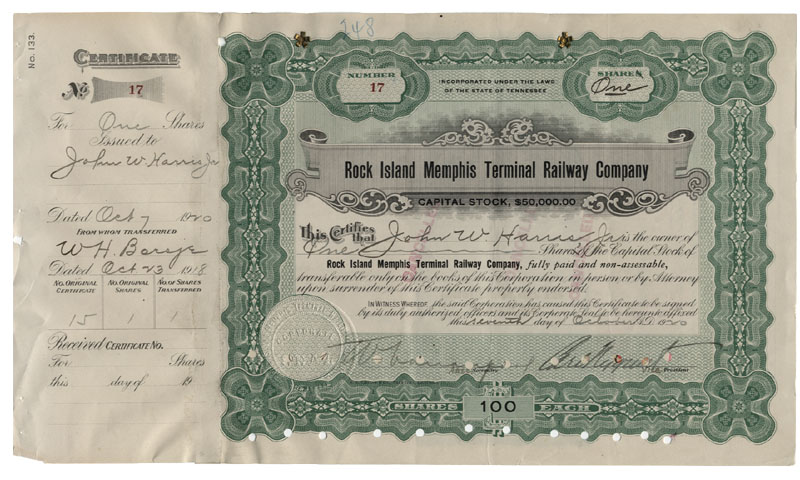 148
No. 133.
CERTIFICATE
No. 17
For One Shares
Issued to
John W Harris Jr
Dated Oct 7 1920
FROM WHOM TRANSFERRED
W. H.
Dated Oct 23 1918
NO. ORIGINAL CERTIFICATE
NO. ORIGINAL SHARES
NO. OF SHARES TRANSFERRED
15 1 1
Received CERTIFICATE NO.
For Shares
this day of 19
NUMBER
17
INCORPORATED UNDER THE LAWS
OF THE STATE OF TENNESSEE
SHARES
One
Rock Island Memphis Terminal Railway Company
CAPITAL STOCK, $50,000.00
This Certifies that John W Harris Jr is the owner of
One Shares of the Capital Stock of
Rock Island Memphis Terminal Railway Company, fully paid and non-assessable,
transferable only on the books of this Corporation in person or by Attorney
upon surrender of this Certificate properly endorsed.
IN WITNESS WHEREOF, the said Corporation has caused this Certificate to be signed
by its duly authorized officers and its Corporate Seal to be hereunto affixed
this seventh day of October A.D. 1920
Secretary
Vice President
SHARES 100 EACH